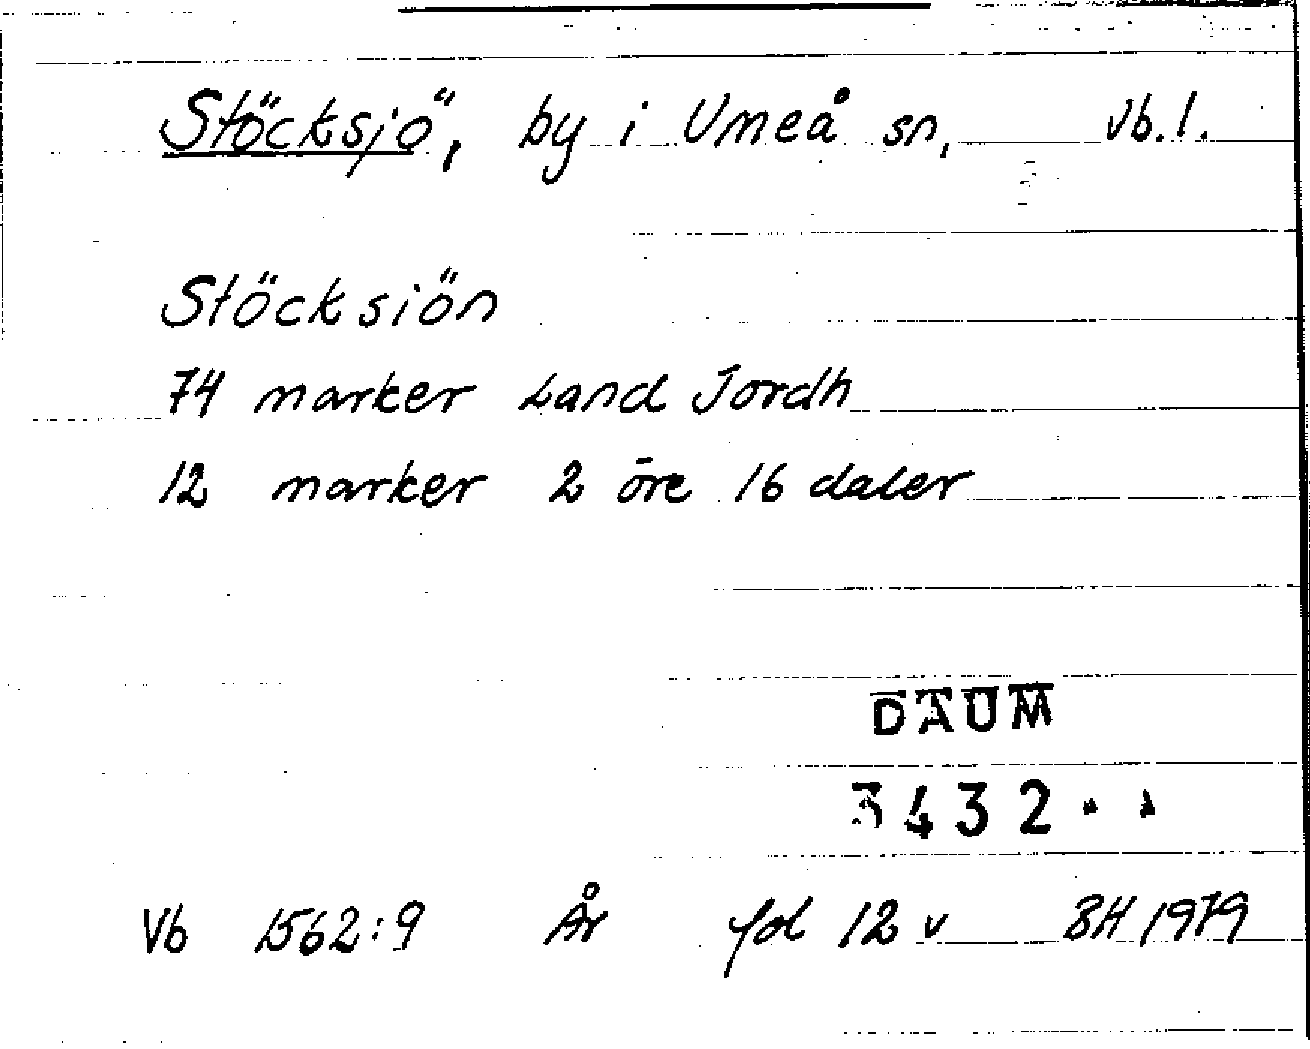 Stöcksjö, by i Umeå sn, Vb.l.
Stöcksiön
74 marker Land Jordh
12 marker 2 öre 16 daler
DAUM
3432
Vb 1562:9 År fol 12 v BH 1979